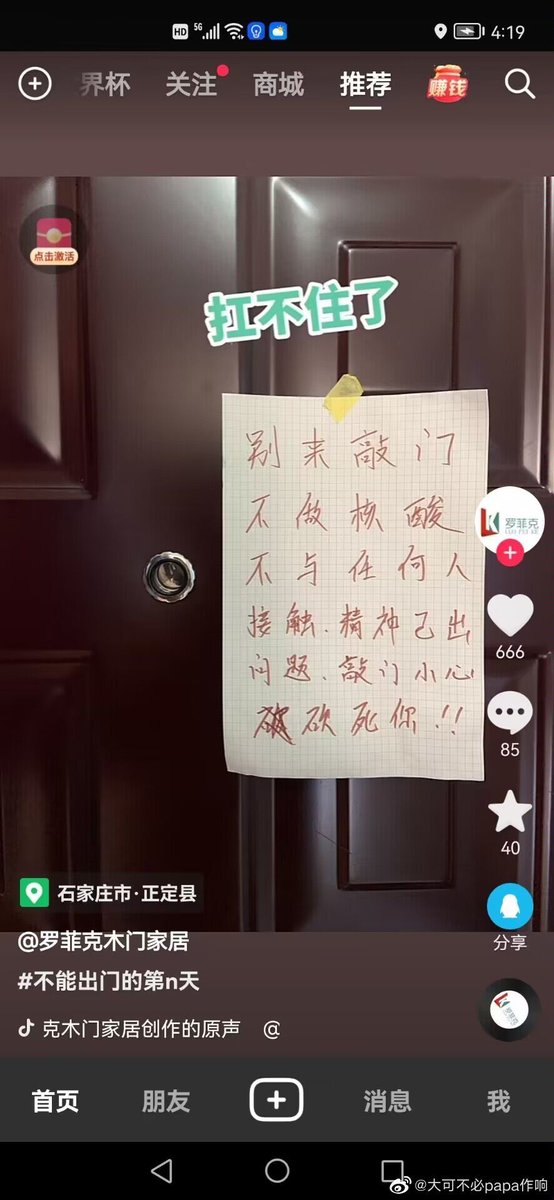 HD 5G 4:19
界杯 关注 商城 推荐 赚钱
点击激活
扛不住了
别来敲门
不做核酸
不与任何人
接触.精神己出
问题.敲门小心
砍死你!!
罗菲克
666
85
40
分享
石家庄市·正定县
@罗菲克木门家居
#不能出门的第n天
克木门家居创作的原声 @
首页 朋友 消息 我
@大可不必papa作响